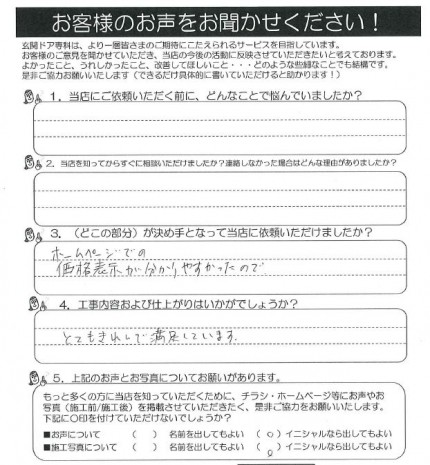 お客様のお声をお聞かせください！
玄関ドア専科は、より一層皆さまのご期待にこたえられるサービスを目指しています。
お客様のご意見を聞かせていただき、当店の今後の活動に反映させていただきたいと考えております。
よかったこと、うれしかったこと、改善してほしいこと・・・どのような些細なことでも結構です。
是非ご協力お願いいたします（できるだけ具体的に書いていただけると助かります！）
1．当店にご依頼いただく前に、どんなことで悩んでいましたか？
2．当店を知ってからすぐに相談いただけましたか？連絡しなかった場合はどんな理由がありましたか？
3．（どこの部分）が決め手となって当店に依頼いただけましたか？
ホームページでの
価格表示が分かりやすかったので
4．工事内容および仕上がりはいかがでしょうか？
とてもきれいで満足しています。
5．上記のお声とお写真についてお願いがあります。
もっと多くの方に当店を知っていただくために、チラシ・ホームページ等にお声やお
写真（施工前/施工後）を掲載させていただきたく、是非ご協力をお願いいたします。
下記に〇印を付けていただけないでしょうか？
■お声について （ ） 名前を出してもよい （○）イニシャルなら出してもよい
■施工写真について （ ） 名前を出してもよい （○）イニシャルなら出してもよい